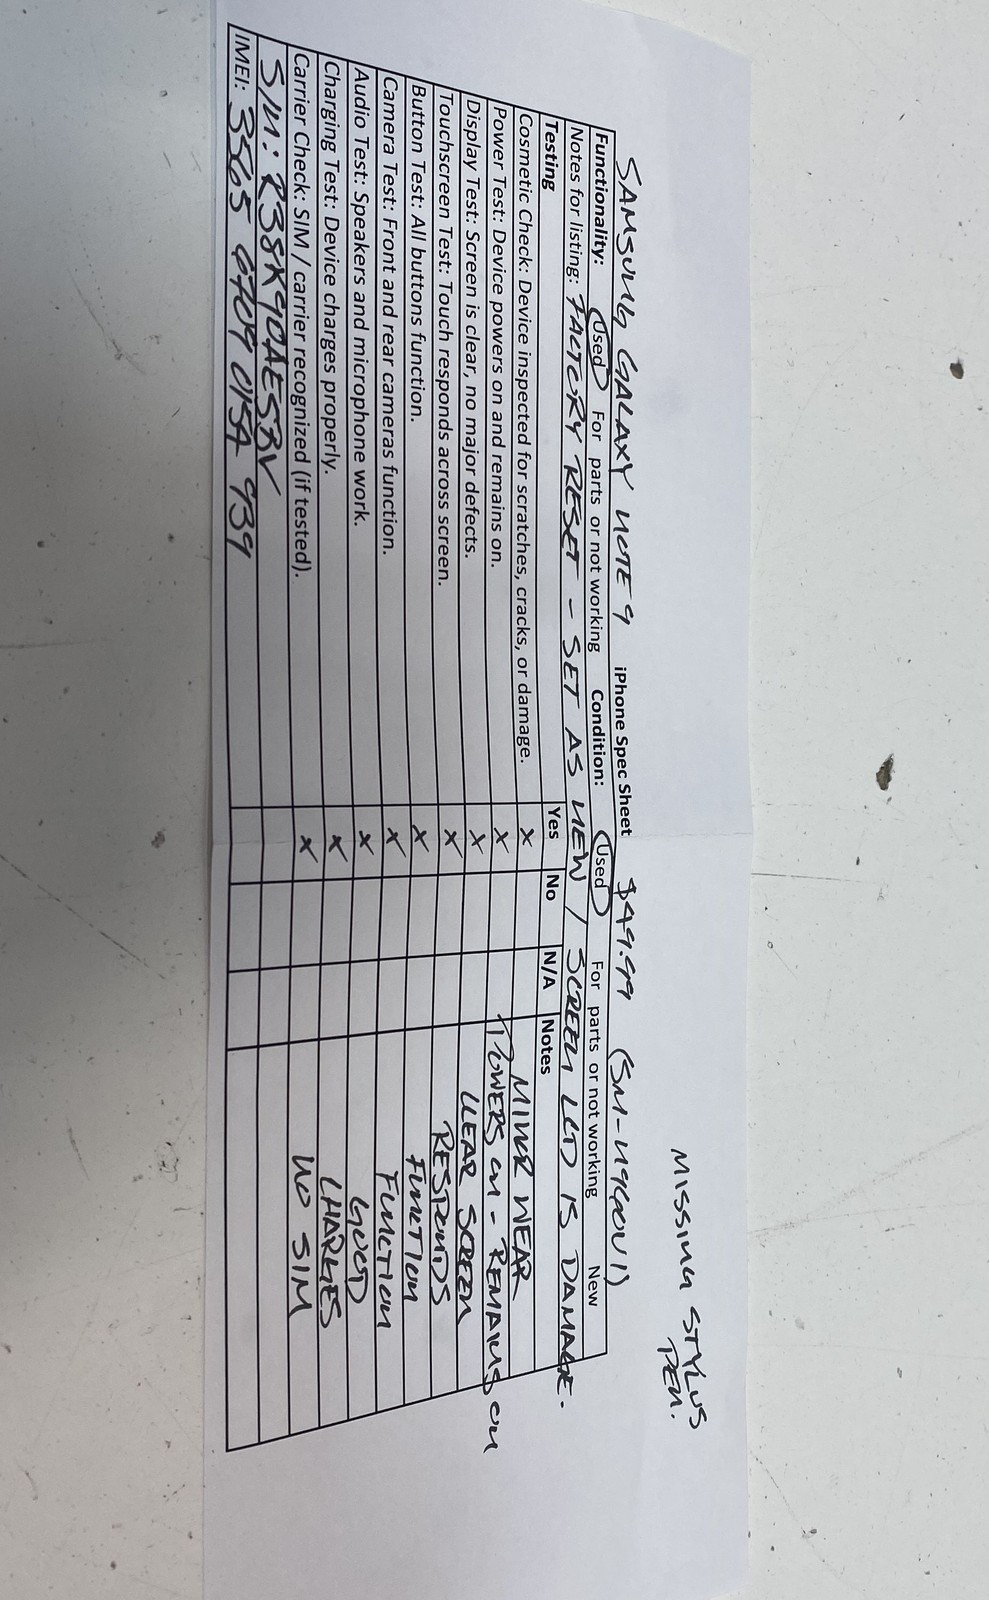 MISSING STYLUS
PEN.
SAMSUNG GALAXY NOTE 9 iPhone Spec Sheet $49.99 (SM-N960U1)
Functionality: Used For parts or not working Condition: Used For parts or not working New
Notes for listing: FACTORY RESET - SET AS NEW / SCREEN LCD IS DAMAGE.
Testing Yes No N/A Notes
Cosmetic Check: Device inspected for scratches, cracks, or damage. X MINOR WEAR
Power Test: Device powers on and remains on. X POWERS ON - REMAINS ON
Display Test: Screen is clear, no major defects. X CLEAR SCREEN
Touchscreen Test: Touch responds across screen. X RESPONDS
Button Test: All buttons function. X FUNCTION
Camera Test: Front and rear cameras function. X FUNCTION
Audio Test: Speakers and microphone work. X GOOD
Charging Test: Device charges properly. X CHARGES
Carrier Check: SIM / carrier recognized (if tested). X NO SIM
S/N: R38K90AESBV
IMEI: 3565 6709 0154 939